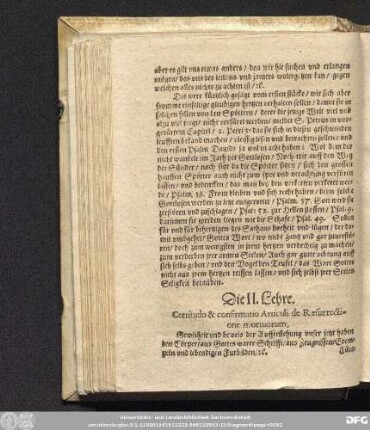 aber es gilt uns etwas anders / den wir hie suchen und erlangen
mögen / das uns des leidens und jamers wolergötzen kan / gegen
welchen alles nichts zu achten ist / ꝛc.
Dis were kürtzlich gesagt vom ersten stücke / wie sich aber
frome einfeltige gleubigen hertzen verhalten sollen / damit sie in
solchen fellen von den Spöttern / derer die jetzige Welt viel und
alzu viel tregt / nicht verführet werden / meldet S. Petrus im vor-
2. Petri 3. das sie sich in diesen geschwinden
und verwarlich
den ersten Psalm Davids zu wol in acht haben : Wol dem der
nicht wandelt im Rath der Gottlosen / Noch tritt auff den Weg
der Sünder / noch sitzt da die Spötter sitzen / sich den grossen
hauffen Spötter auch nicht zum spot und verachtung verführen
lassen / und bedencken / das man bey den verkerten verkeret wer-
de / Psalm. 18. From bleiben und sich recht halten / denn solche
Gottlosen werden zu letzt ausgerottet / Psalm. 37. Gott wird sie
zerstören und zuschlagen / Psal. 52. zur Hellen stossen / Psal. 9.
darinnen sie werden liegen wie die Schafe / Psal. 49. Sollen
für und für behertzigen des Sathans borheit und lügen / der da-
mit umbgehet / Gottes Wort / wo nicht gantz und gar zuverstö-
ren / doch zum wenigsten in jren hertzen verdechtig zu machen /
zum verderben jrer armen Seelen / Auch gar gute achtung auff
sich selbst geben / und dem Vogel den Teufel / das Wort Gottes
nicht aus jrem hertzen reissen lassen / und sich selbst jrer Seelen
Seligkeit berauben.
Die II. Lehre.
Certitudo & confirmatio Articuli de Resurrecti-
one mortuorum,
Gewisheit und beweis der Aufferstehung unser jetzt haben-
den Cörper / aus Gottes warer Schrifft / aus Zeugnissen / Exem-
peln und lebendigen Fürbilden / ꝛc.